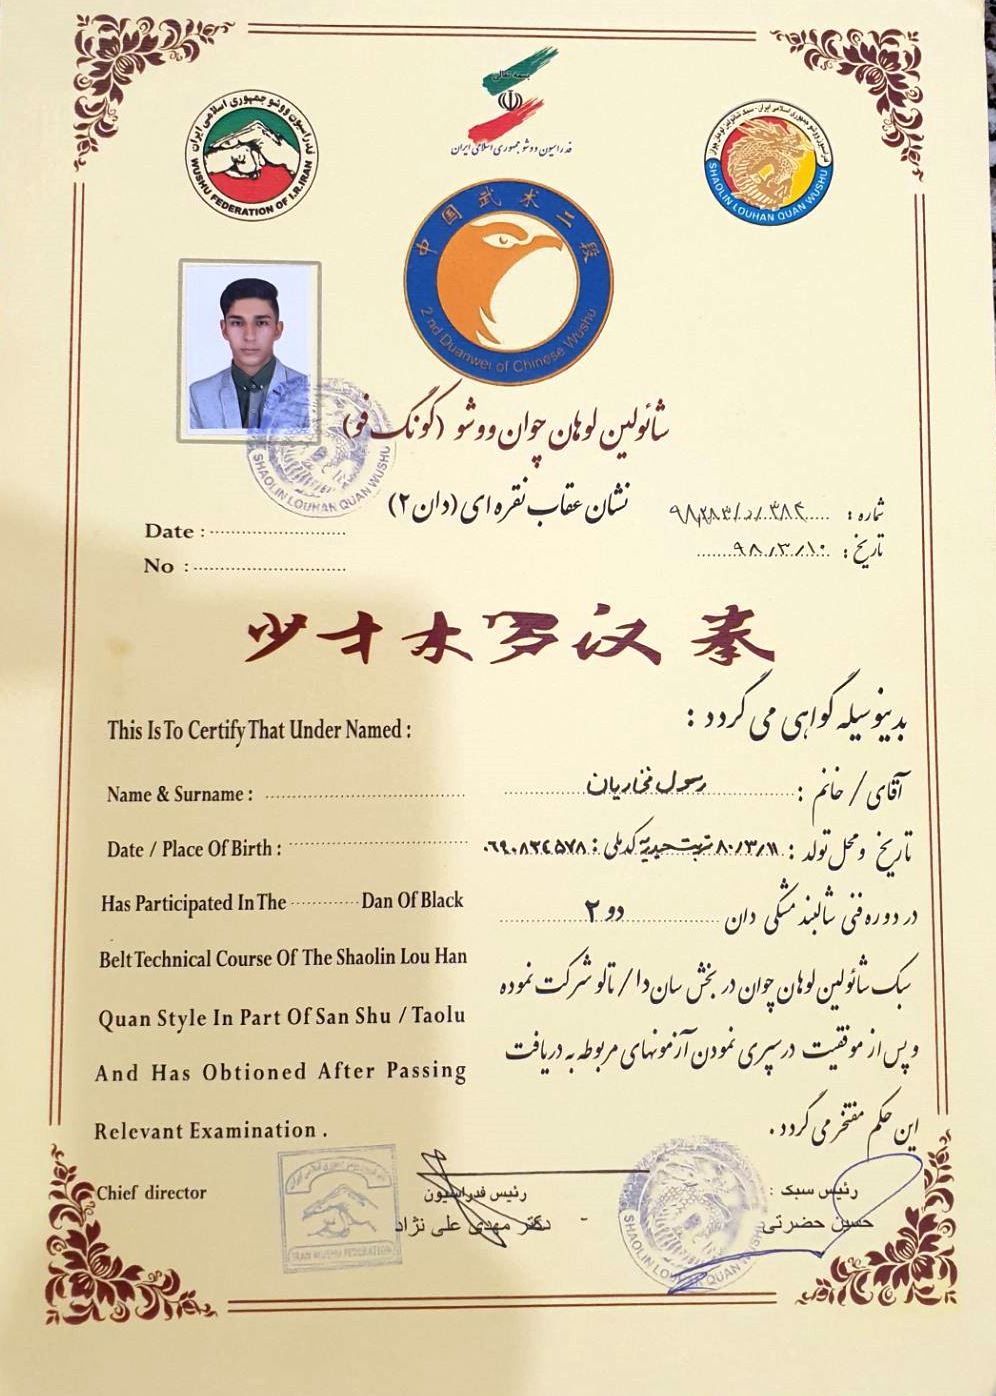 بسمه تعالی
فدراسیون ووشو جمهوری اسلامی ایران
فدراسیون ووشو جمهوری اسلامی ایران
WUSHU FEDERATION OF I.R.IRAN
SHAOLIN LOUHAN QUAN WUSHU
中国武术二段
2 nd Duanwei of Chinese Wushu
شائولین لوهان چوان ووشو (گونگ فو)
SHAOLIN LOUHAN QUAN WUSHU
نشان عقاب نقره ای (دان ۲)
شماره :
Date :
تاریخ : ۹۸/۳/۱۰
No :
少才木罗汉拳
بدینوسیله گواهی می گردد :
This Is To Certify That Under Named :
آقای / خانم : رسول فخاریان
Name & Surname :
تاریخ و محل تولد : ۸۰/۳/۱۱ تربت حیدریه کد ملی : ۰۶۹۰۸۲۴۵۷۸
Date / Place Of Birth :
در دوره فنی شالبند مشکی دان دو ۲
Has Participated In The Dan Of Black
سبک شائولین لوهان چوان در بخش سان دا / تالو شرکت نموده
Belt Technical Course Of The Shaolin Lou Han
Quan Style In Part Of San Shu / Taolu
و پس از موفقیت در سپری نمودن آزمونهای مربوطه به دریافت
And Has Obtioned After Passing
این حکم مفتخر می گردد .
Relevant Examination .
Chief director
رئیس سبک :
حسین حضرتی
رئیس فدراسیون
دکتر مهدی علی نژاد
IRAN WUSHU FEDERATION
SHAOLIN LOUHAN QUAN WUSHU